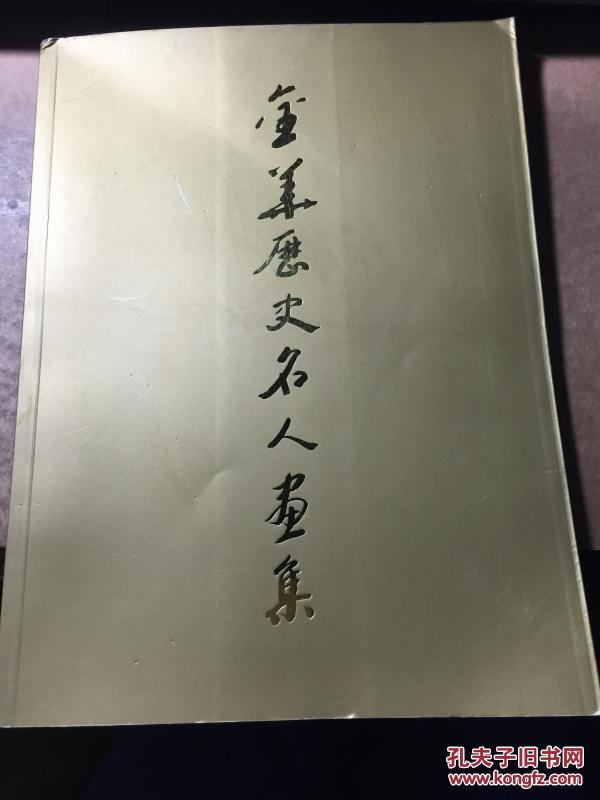 金華歷史名人畫集
孔夫子旧书网
www.kongfz.com